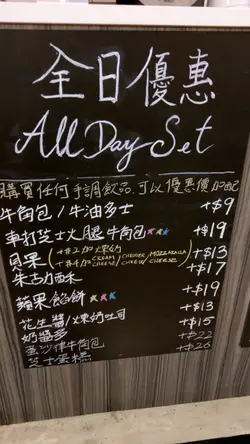 全日優惠
All Day Set
購買任何手調飲品可以優惠價加配
牛角包/牛油多士 +$9
車打芝士火腿牛角包 +$19
貝果 (+$2加煉奶 +$4加CREAM CHEESE/CHEDDER CHEESE/MOZZARELLA CHEESE) +$13
朱古力酥 +$17
蘋果餡餅 +$19
花生醬/煉奶吐司 +$13
奶醬多 +$15
金沙律牛角包 +$22
芝士蛋糕 +$26